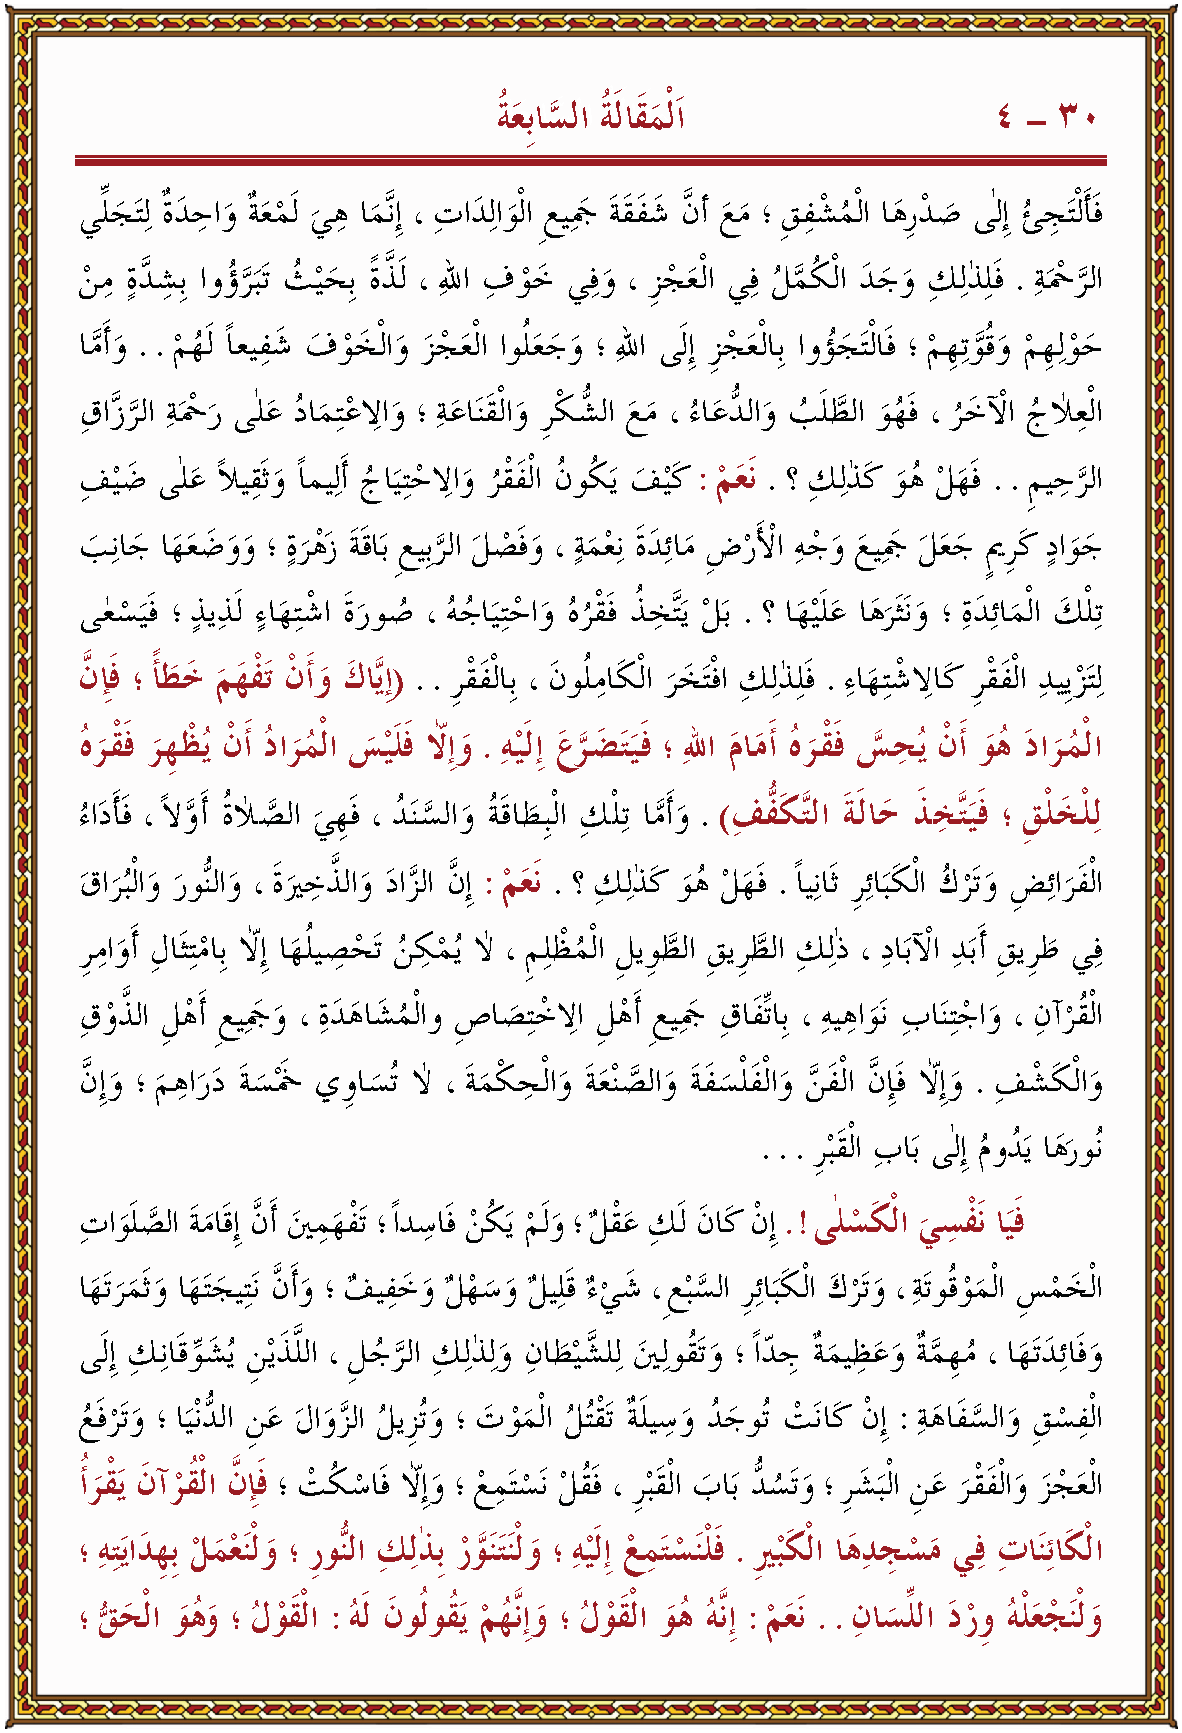 ٣٠ – ٤ اَلْمَقَالَةُ السَّابِعَةُ
فَأَلْتَجِئُ إِلٰى صَدْرِهَا الْمُشْفِقِ ؛ مَعَ أنَّ شَفَقَةَ جَمِيعِ الْوَالِدَاتِ ، إِنَّمَا هِيَ لَمْعَةٌ وَاحِدَةٌ لِتَجَلِّي
الرَّحْمَةِ . فَلِذٰلِكَ وَجَدَ الْكُمَّلُ فِي الْعَجْزِ ، وَفِي خَوْفِ اللهِ ، لَذَّةً بِحَيْثُ تَبَرَّؤُوا بِشِدَّةٍ مِنْ
حَوْلِهِمْ وَقُوَّتِهِمْ ؛ فَالْتَجَؤُوا بِالْعَجْزِ إِلَى اللهِ ؛ وَجَعَلُوا الْعَجْزَ وَالْخَوْفَ شَفِيعاً لَهُمْ . . وَأَمَّا
الْعِلَاٰجُ الْآخَرُ ، فَهُوَ الطَّلَبُ وَالدُّعَاءُ ، مَعَ الشُّكْرِ وَالْقَنَاعَةِ ؛ وَالِاعْتِمَادُ عَلٰى رَحْمَةِ الرَّزَّاقِ
الرَّحِيمِ . . فَهَلْ هُوَ كَذٰلِكَ ؟ . نَعَمْ : كَيْفَ يَكُونُ الْفَقْرُ وَالِاحْتِيَاجُ أَلِيماً وَثَقِيلاً عَلٰى ضَيْفِ
جَوَادٍ كَرِيمٍ جَعَلَ جَمِيعَ وَجْهِ الْأَرْضِ مَائِدَةَ نِعْمَةٍ ، وَفَصْلَ الرَّبِيعِ بَاقَةَ زَهْرَةٍ ؛ وَوَضَعَهَا جَانِبَ
تِلْكَ الْمَائِدَةِ ؛ وَنَثَرَهَا عَلَيْهَا ؟ . بَلْ يَتَّخِذُ فَقْرُهُ وَاحْتِيَاجُهُ ، صُورَةَ اشْتِهَاءٍ لَذِيذٍ ؛ فَيَسْعٰى
لِتَزْيِيدِ الْفَقْرِ كَالِاشْتِهَاءِ . فَلِذٰلِكَ افْتَخَرَ الْكَامِلُونَ ، بِالْفَقْرِ . . (إِيَّاكَ وَأَنْ تَفْهَمَ خَطَأً ؛ فَإِنَّ
الْمُرَادَ هُوَ أَنْ يُحِسَّ فَقْرَهُ أَمَامَ اللهِ ؛ فَيَتَضَرَّعَ إِلَيْهِ . وَإِلَّاٰ فَلَيْسَ الْمُرَادُ أَنْ يُظْهِرَ فَقْرَهُ
لِلْخَلْقِ ؛ فَيَتَّخِذَ حَالَةَ التَّكَفُّفِ) . وَأَمَّا تِلْكَ الْبِطَاقَةُ وَالسَّنَدُ ، فَهِيَ الصَّلَاٰةُ أَوَّلاً ، فَأَدَاءُ
الْفَرَائِضِ وَتَرْكُ الْكَبَائِرِ ثَانِياً . فَهَلْ هُوَ كَذٰلِكَ ؟ . نَعَمْ : إِنَّ الزَّادَ وَالذَّخِيرَةَ ، وَالنُّورَ وَالْبُرَاقَ
فِي طَرِيقِ أَبَدِ الْآبَادِ ، ذٰلِكَ الطَّرِيقِ الطَّوِيلِ الْمُظْلِمِ ، لَاٰ يُمْكِنُ تَحْصِيلُهَا إِلَّاٰ بِامْتِثَالِ أَوَامِرِ
الْقُرْآنِ ، وَاجْتِنَابِ نَوَاهِيهِ ، بِاتِّفَاقِ جَمِيعِ أَهْلِ الِاخْتِصَاصِ والْمُشَاهَدَةِ ، وَجَمِيعِ أَهْلِ الذَّوْقِ
وَالْكَشْفِ . وَإِلَّاٰ فَإِنَّ الْفَنَّ وَالْفَلْسَفَةَ وَالصَّنْعَةَ وَالْحِكْمَةَ ، لَاٰ تُسَاوِي خَمْسَةَ دَرَاهِمَ ؛ وَإِنَّ
نُورَهَا يَدُومُ إِلٰى بَابِ الْقَبْرِ . . .
فَيَا نَفْسِيَ الْكَسْلٰى ! . إِنْ كَانَ لَكِ عَقْلٌ ؛ وَلَمْ يَكُنْ فَاسِداً ؛ تَفْهَمِينَ أَنَّ إِقَامَةَ الصَّلَوَاتِ
الْخَمْسِ الْمَوْقُوتَةِ ، وَتَرْكَ الْكَبَائِرِ السَّبْعِ ، شَيْءٌ قَلِيلٌ وَسَهْلٌ وَخَفِيفٌ ؛ وَأَنَّ نَتِيجَتَهَا وَثَمَرَتَهَا
وَفَائِدَتَهَا ، مُهِمَّةٌ وَعَظِيمَةٌ جِدّاً ؛ وَتَقُولِينَ لِلشَّيْطَانِ وَلِذٰلِكَ الرَّجُلِ ، الَّذَيْنِ يُشَوِّقَانِكِ إِلَى
الْفِسْقِ وَالسَّفَاهَةِ : إِنْ كَانَتْ تُوجَدُ وَسِيلَةٌ تَقْتُلُ الْمَوْتَ ؛ وَتُزِيلُ الزَّوَالَ عَنِ الدُّنْيَا ؛ وَتَرْفَعُ
الْعَجْزَ وَالْفَقْرَ عَنِ الْبَشَرِ ؛ وَتَسُدُّ بَابَ الْقَبْرِ ، فَقُلْ نَسْتَمِعْ ؛ وَإِلَّاٰ فَاسْكُتْ ؛ فَإِنَّ الْقُرْآنَ يَقْرَأُ
الْكَائِنَاتِ فِي مَسْجِدِهَا الْكَبْيرِ . فَلْنَسْتَمِعْ إِلَيْهِ ؛ وَلْنَتَنَوَّرْ بِذٰلِكِ النُّورِ ؛ وَلْنَعْمَلْ بِهِدَايَتِهِ ؛
وَلْنَجْعَلْهُ وِرْدَ اللِّسَانِ . . نَعَمْ : إِنَّهُ هُوَ الْقَوْلُ ؛ وَإِنَّهُمْ يَقُولُونَ لَهُ : الْقَوْلُ ؛ وَهُوَ الْحَقُّ ؛